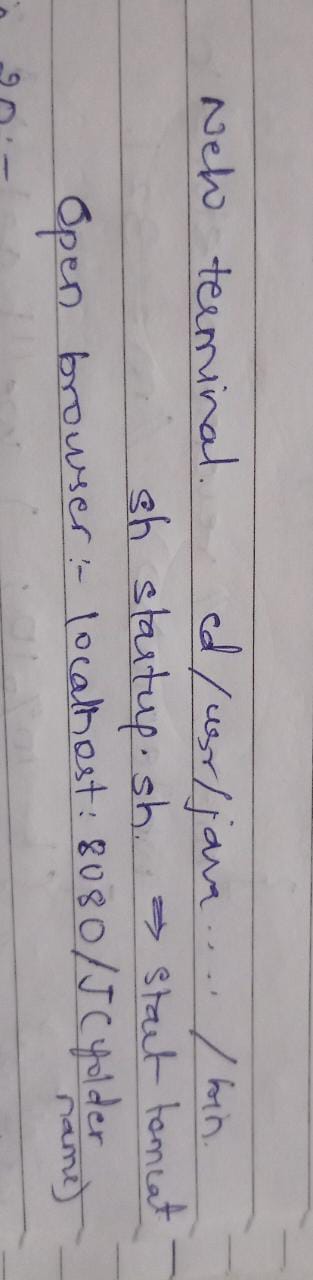 New terminal. cd /usr/java..... /bin.
sh startup.sh. ⇒ start tomcat
Open browser :- localhost:8080/J(folder
name)
20:-